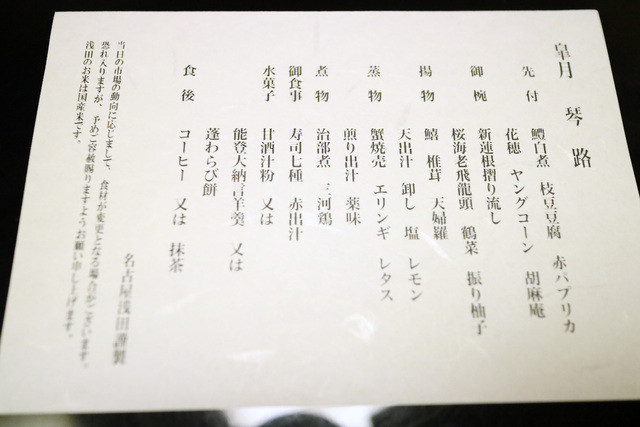 皐月 琴路
先付 鱧白煮 枝豆豆腐 赤パプリカ
花穂 ヤングコーン 胡麻庵
御椀 新蓮根摺り流し
桜海老飛龍頭 鶴菜 振り柚子
揚物 鱚 椎茸 天婦羅
天出汁 卸し 塩 レモン
蒸物 蟹焼売 エリンギ レタス
煎り出汁 薬味
煮物 治部煮 三河鶏
御食事 寿司七種 赤出汁
水菓子 甘酒汁粉 又は
能登大納言羊羹 又は
蓬わらび餅
食後 コーヒー 又は 抹茶
名古屋浅田謹製
当日の市場の動向に応じまして、食材が変更となる場合がございます。
恐れ入りますが、予めご容赦賜りますようお願い申し上げます。
浅田のお米は国産米です。